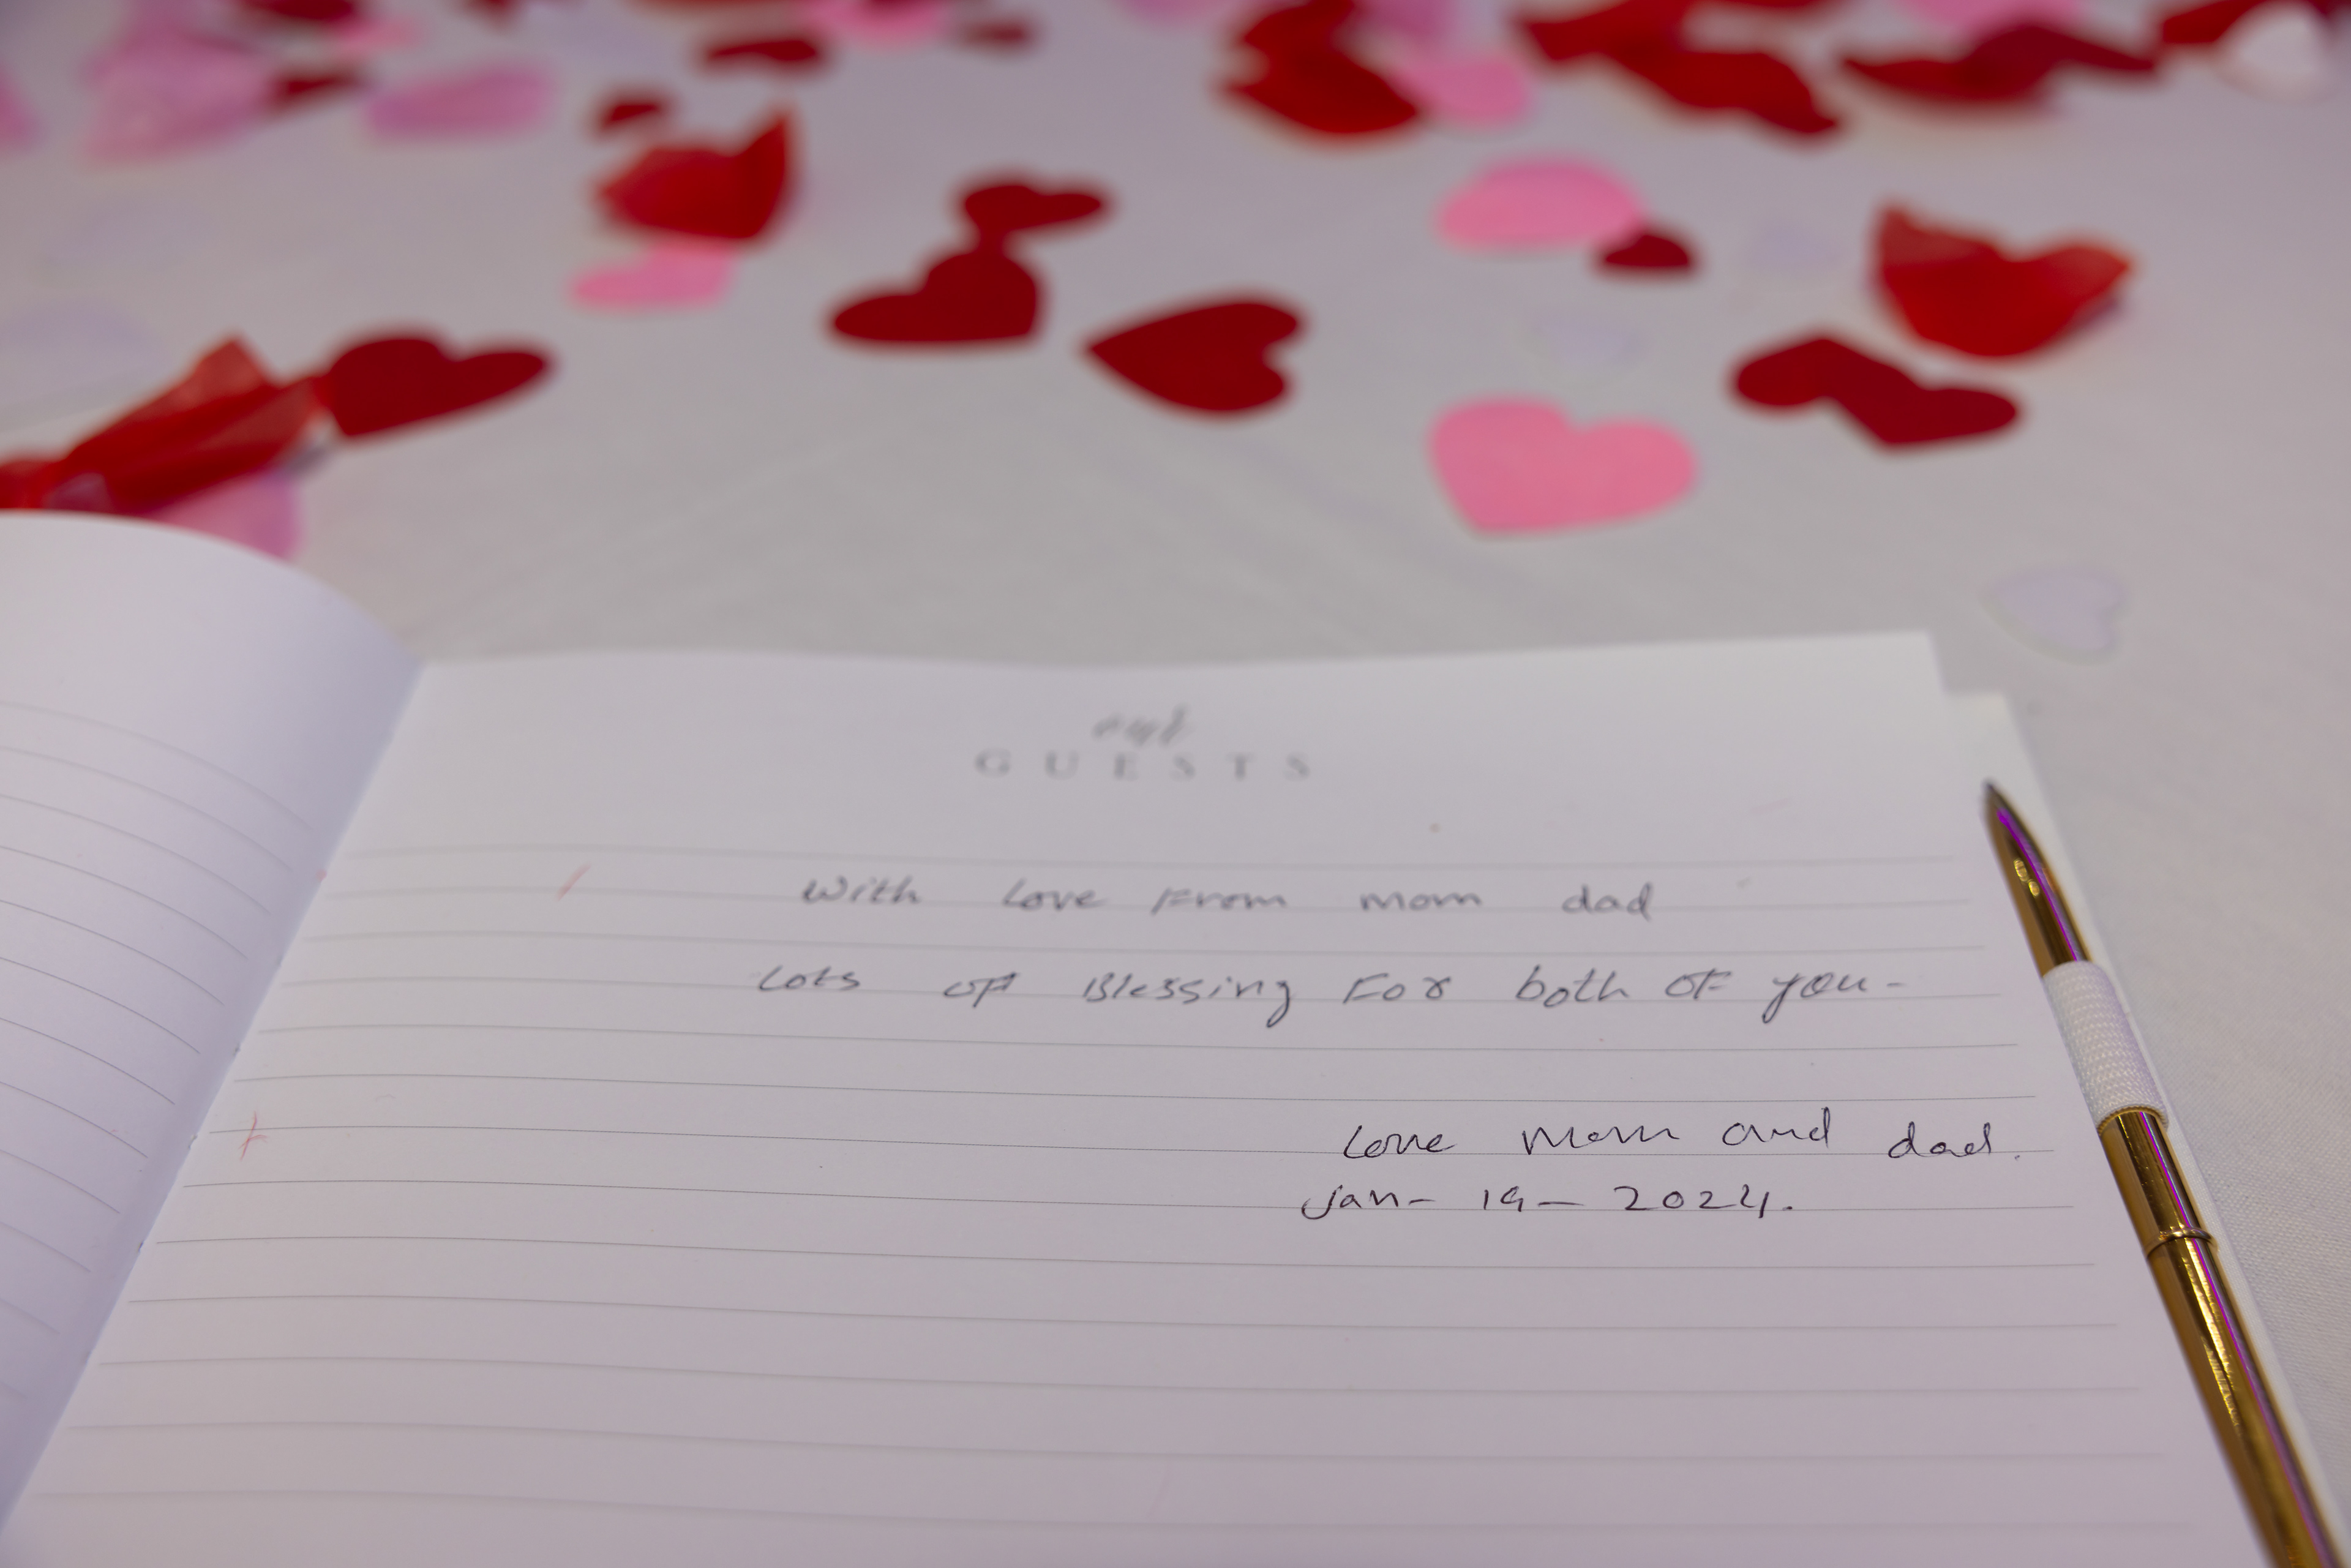 our
GUESTS
With Love From mom dad
Lots of Blessing For both OF you-
Love Mom and dad.
Jan- 19- 2024.